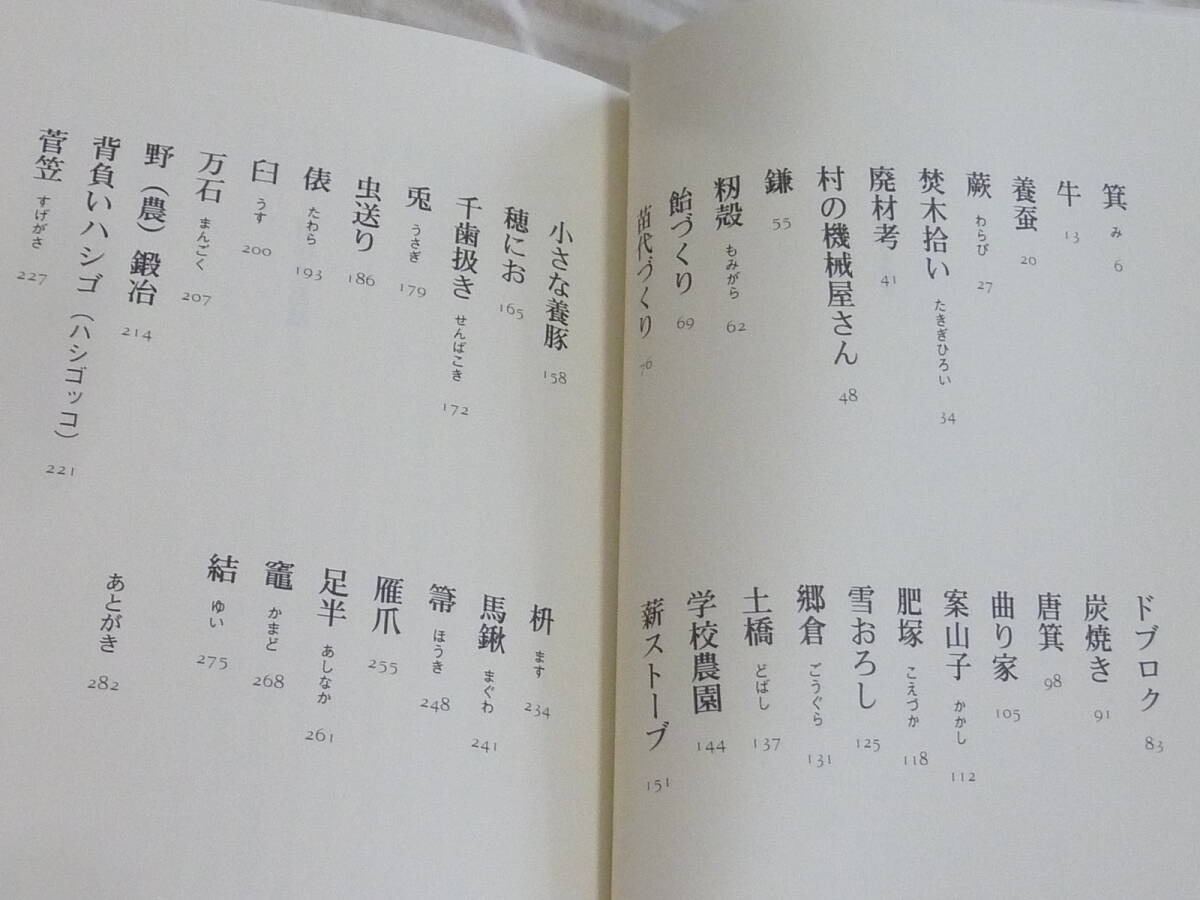 箕 み 6
牛 13
養蚕 20
蕨 わらび 27
焚木拾い たきぎひろい 34
廃材考 41
村の機械屋さん 48
鎌 55
籾殻 もみがら 62
飴づくり 69
苗代づくり 76
ドブロク 83
炭焼き 91
唐箕 98
曲り家 105
案山子 かかし 112
肥塚 こえづか 118
雪おろし 125
郷倉 ごうぐら 131
土橋 どばし 137
学校農園 144
薪ストーブ 151
小さな養豚 158
穂にお 165
千歯扱き せんばこき 172
兎 うさぎ 179
虫送り 186
俵 たわら 193
臼 うす 200
万石 まんごく 207
野（農）鍛冶 214
背負いハシゴ（ハシゴッコ） 221
菅笠 すげがさ 227
枡 ます 234
馬鍬 まぐわ 241
箒 ほうき 248
雁爪 255
足半 あしなか 261
竈 かまど 268
結 ゆい 275
あとがき 282